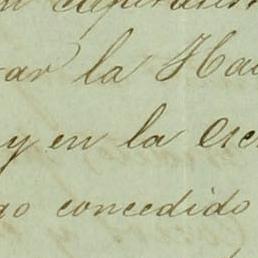 ar la Ha
y en la Ese
go concedido